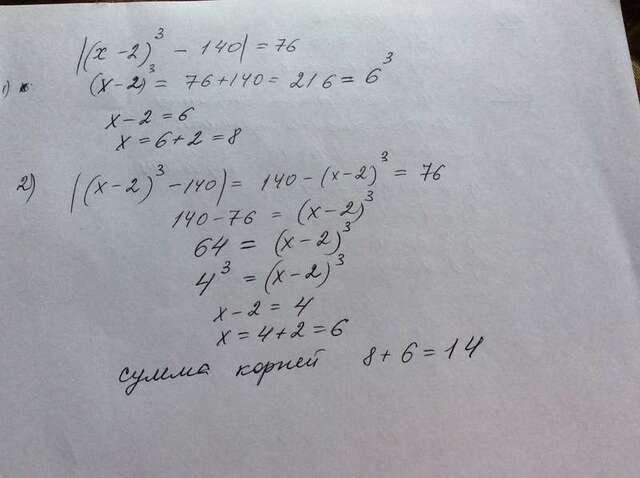 |(x-2)³ - 140| = 76
1) (x-2)³ = 76+140 = 216 = 6³
x-2 = 6
x = 6+2 = 8
2) |(x-2)³-140| = 140-(x-2)³ = 76
140-76 = (x-2)³
64 = (x-2)³
4³ = (x-2)³
x-2 = 4
x = 4+2 = 6
сумма корней 8+6=14